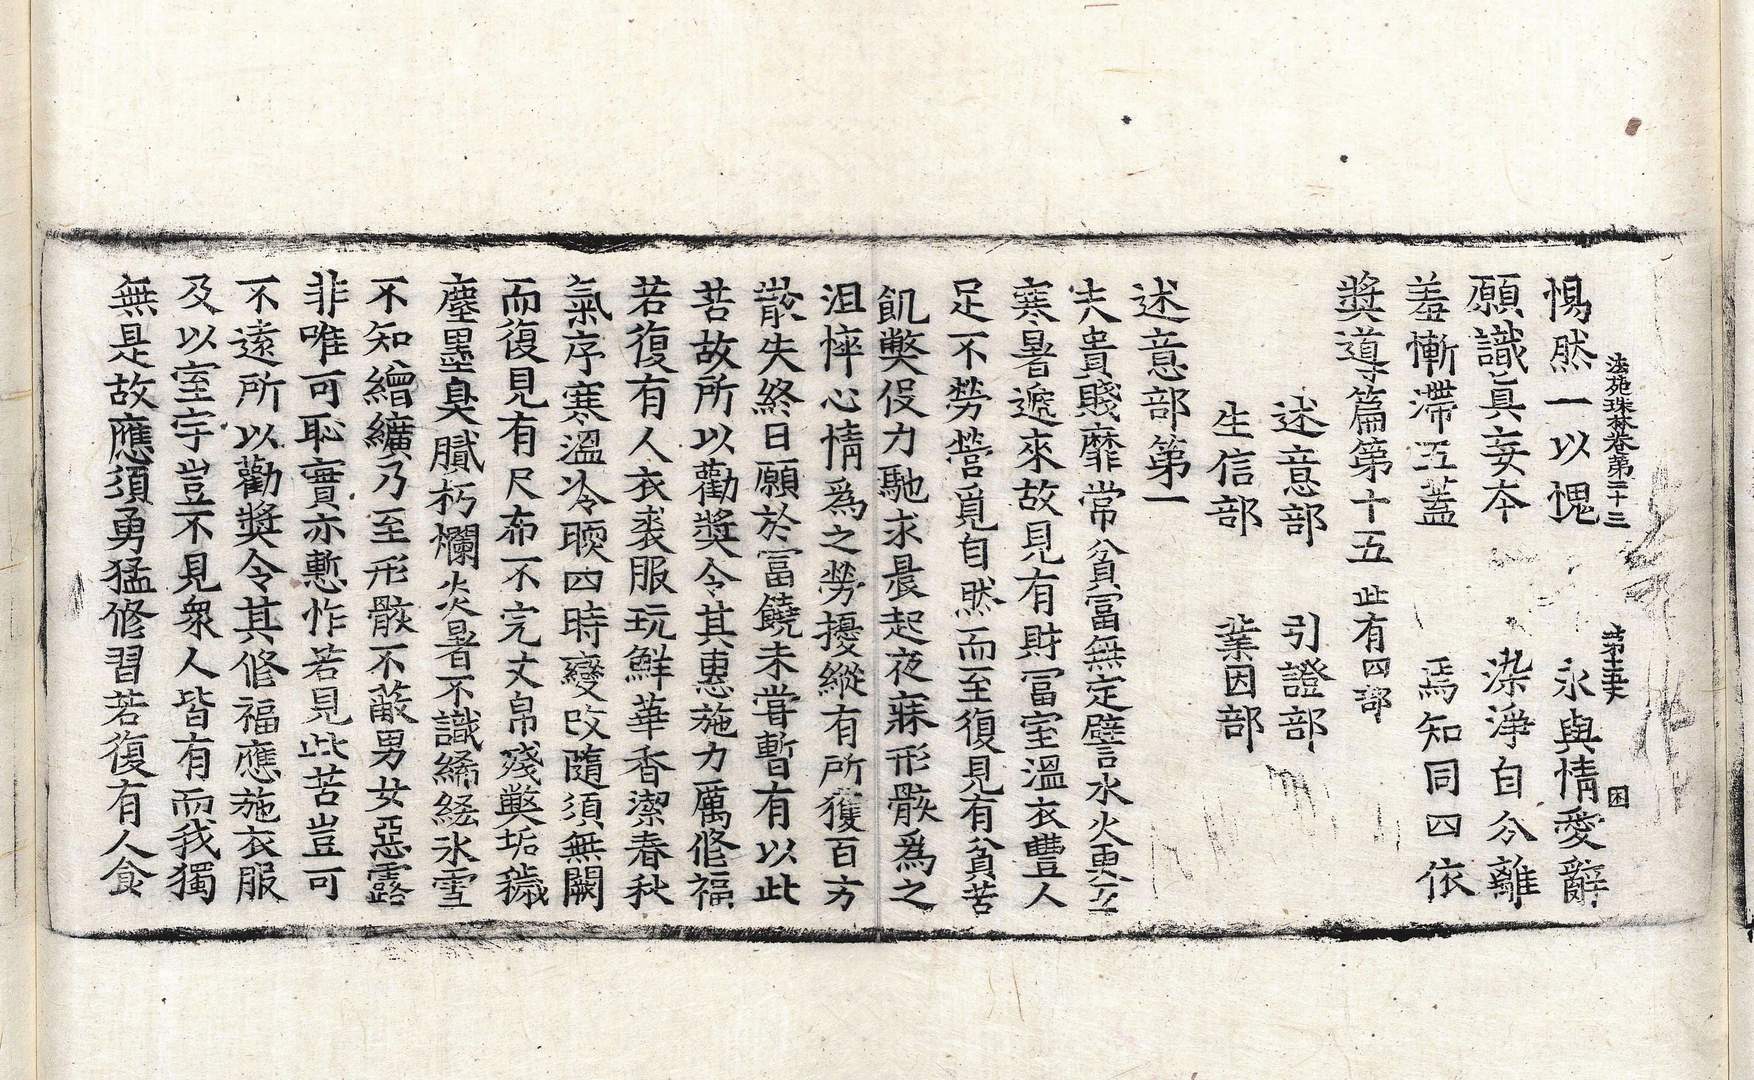 惕然一以愧　永與情愛辭
法苑珠林卷第二十三　第十五丈　困
願識眞妄本　染淨自分離
羞慚滯五蓋　焉知同四依
奬導篇第十五 此有四部
述意部　引證部
生信部　業因部
述意部第一
夫貴賤靡常貧富無定譬水火更互
寒暑遞來故見有財冨室溫衣豐人
足不勞營覓自然而至復見有貧苦
飢弊役力馳求晨起夜寐形骸爲之
沮悴心情爲之勞擾縱有所獲百方
散失終日願於富饒未甞暫有以此
苦故所以勸奬令其惠施力厲修福
若復有人衣裘服玩鮮華香潔春秋
氣序寒溫冷暖四時變改隨須無闕
而復見有尺布不完丈帛殘弊垢穢
塵墨臭膩朽爛炎暑不識絺綌氷雪
不知繒纊乃至形骸不蔽男女惡露
非唯可恥實亦慙怍若見此苦豈可
不遠所以勸奬令其修福應施衣服
及以室宇豈不見衆人皆有而我獨
無是故應須勇猛修習若復有人食